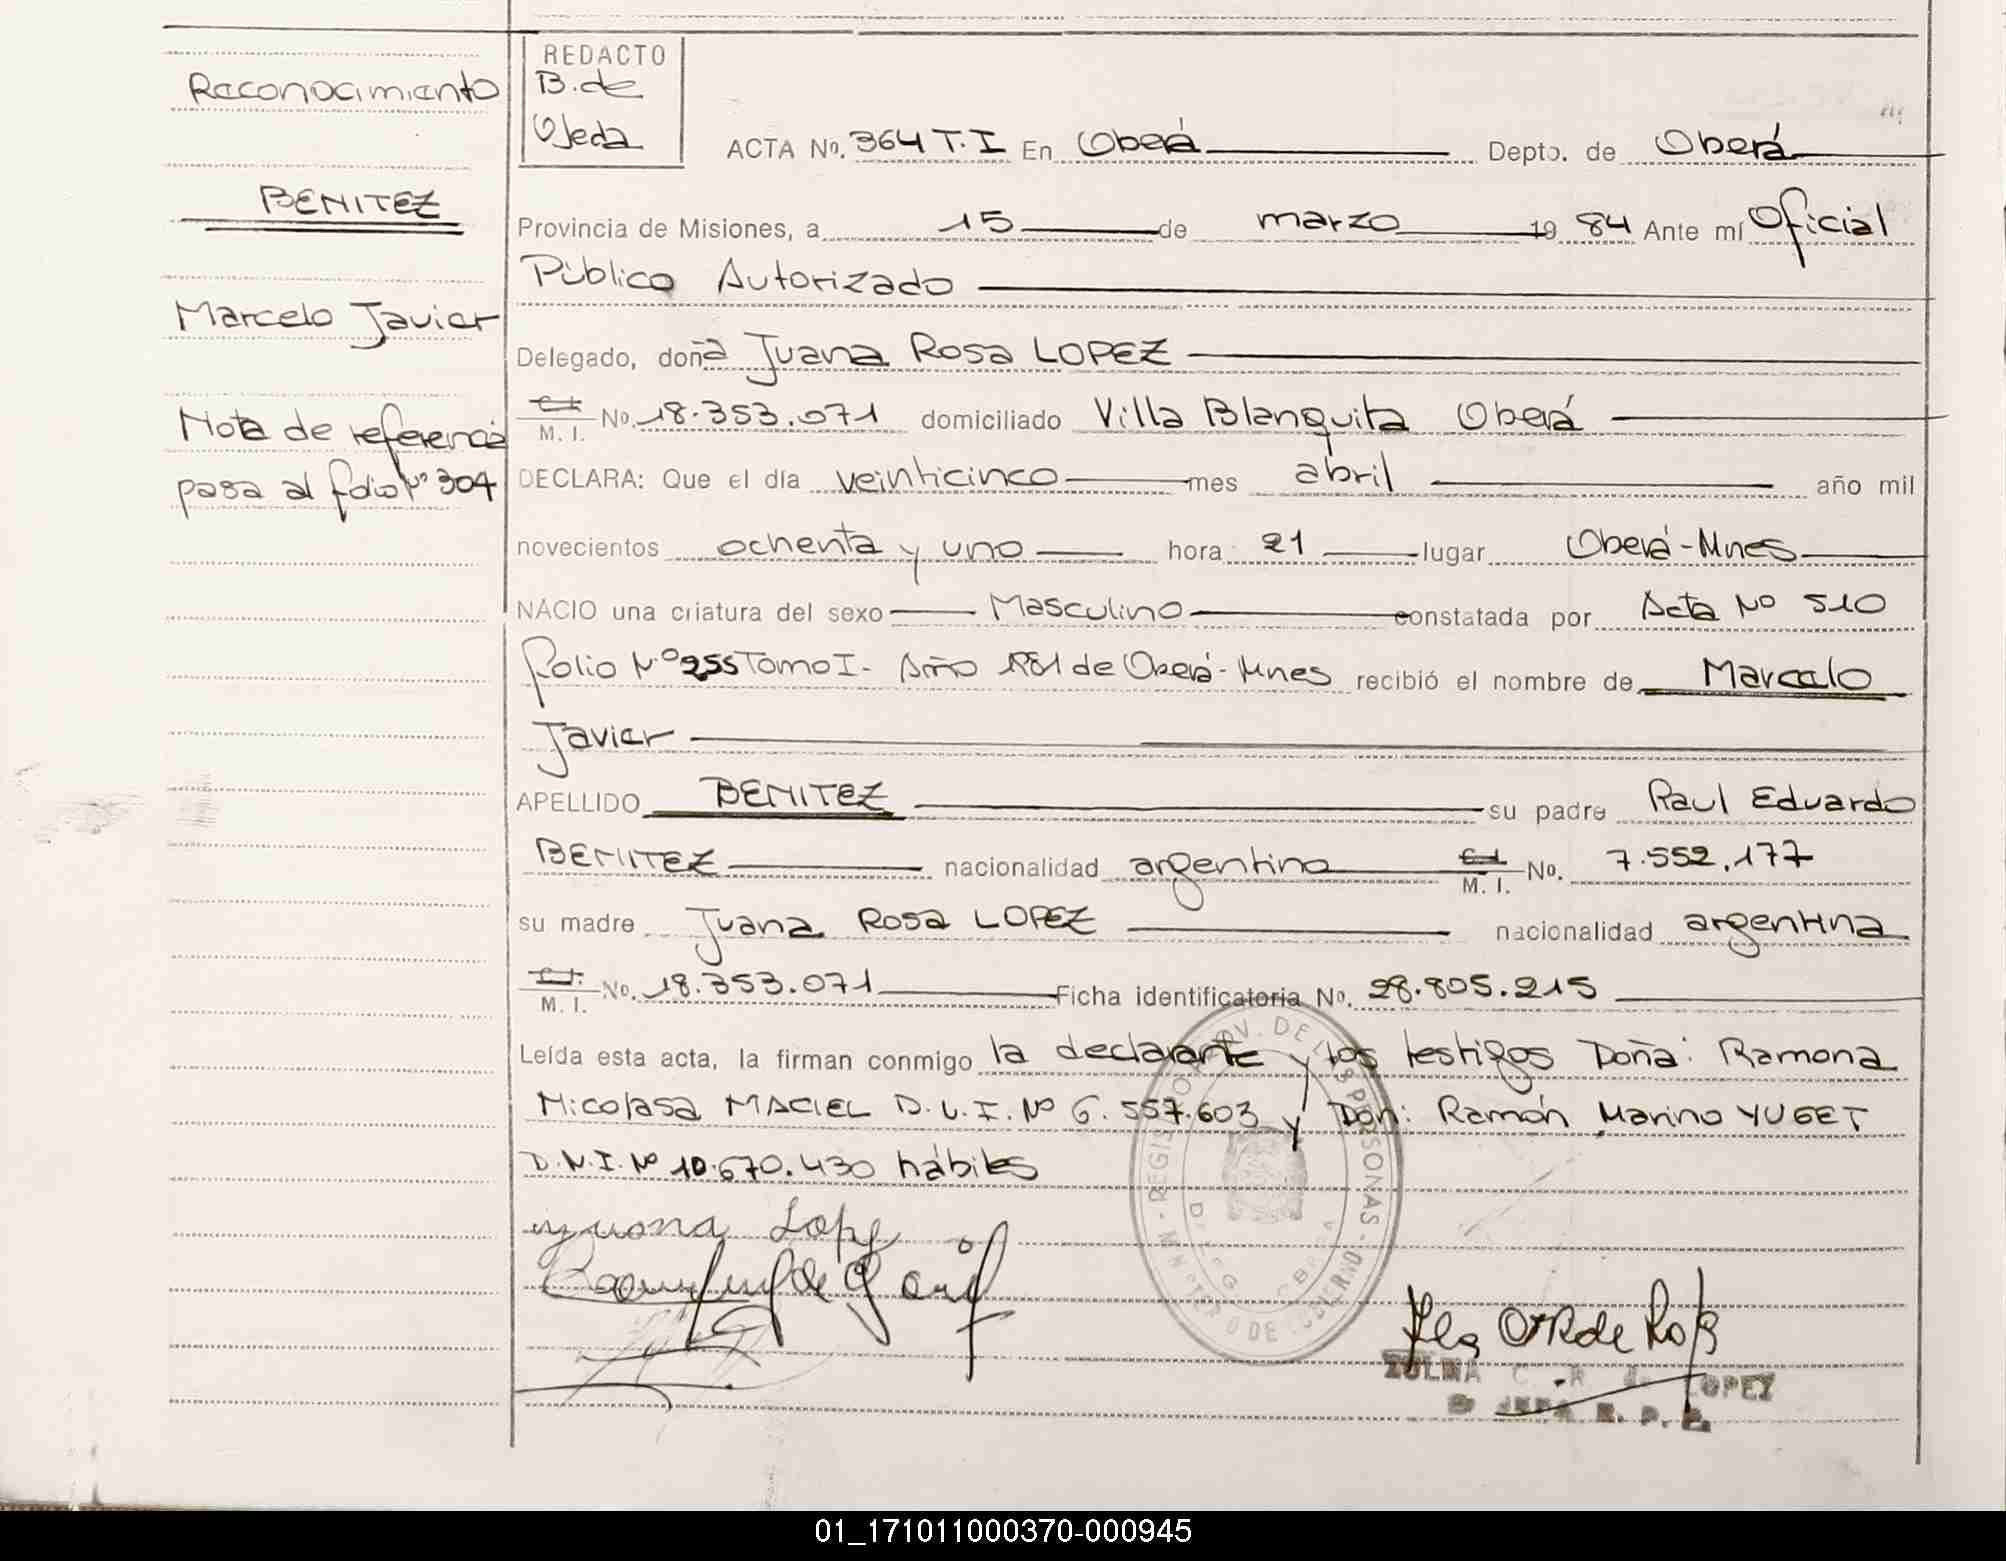 Reconocimiento
BENITEZ
Marcelo Javier
Nota de referencia
pasa al folio Nº 304
REDACTO
B. de
Ojeda
ACTA Nº. 364 T.I En Oberá Depto. de Oberá
Provincia de Misiones, a 15 de marzo 19 84 Ante mí Oficial
Público Autorizado
Delegado, doña Juana Rosa LOPEZ
C.I. M. I. No. 18.353.071 domiciliado Villa Blanquita Oberá
DECLARA: Que el día veinticinco mes abril año mil
novecientos ochenta y uno hora 21 lugar Oberá-Mnes
NACIO una criatura del sexo Masculino constatada por Acta Nº 510
folio Nº 255 Tomo I- Año 1981 de Oberá-Mnes recibió el nombre de Marcelo
Javier
APELLIDO BENITEZ su padre Raul Eduardo
BENITEZ nacionalidad argentina C.I. M. I. No. 7.552.177
su madre Juana Rosa LOPEZ nacionalidad argentina
C.I. M. I. No. 18.353.071 Ficha identificatoria No. 28.805.215
Leída esta acta, la firman conmigo la declarante y los testigos Doña: Ramona
Nicolasa MACIEL D.N.I. Nº 6.557.603 y Don: Ramón Marino YUGET
D.N.I. Nº 10.670.430 hábiles
REGISTRO PROV. DE LAS PERSONAS - MINISTERIO DE GOBIERNO
ZULMA C. R. de LOPEZ
JEFA R. P. P.
01_171011000370-000945